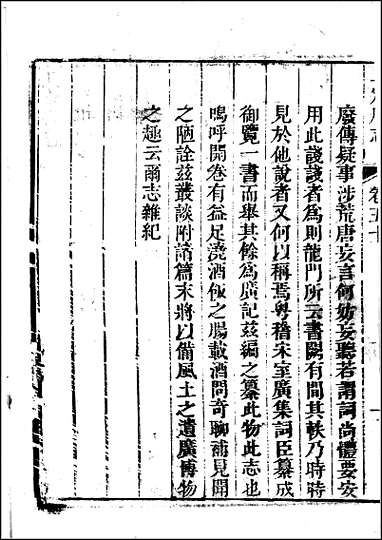 卷五十
廢傳疑事涉荒唐妄言何妨妄聽若謂詞尚體要安
用此諓諓者爲則龍門所云書闕有間其軼乃時時
見於他說者又何以稱焉粤稽宋室廣集詞臣纂成
御覽一書而舉其餘爲廣記茲編之纂此物此志也
嗚呼開卷有益足澆酒飯之腸載酒問奇聊補見聞
之陋詮茲叢談附諸篇末將以備風土之遺廣博物
之趣云爾志雜紀